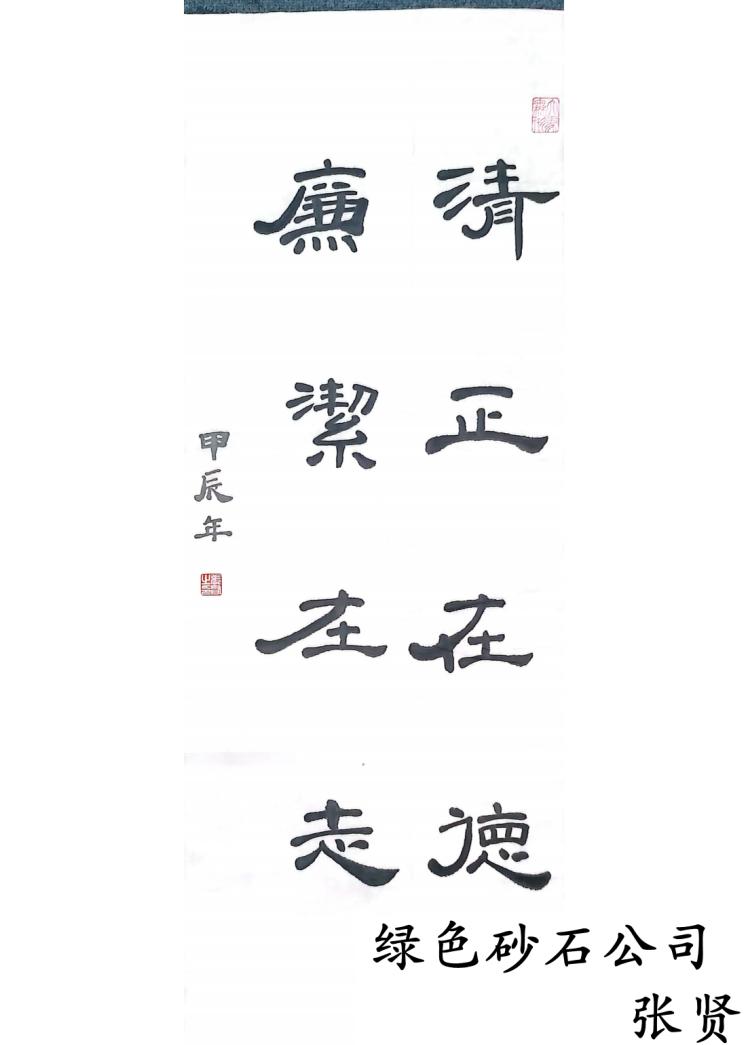 清正在德
廉潔在志
甲辰年
绿色砂石公司
张贤